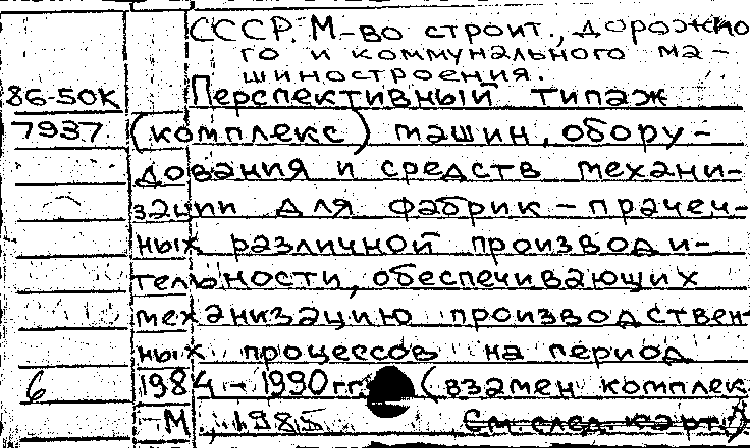 СССР. М-во строит., дорожно
го и коммунального ма-
шиностроения.
86-50К Перспективный типаж
7937. (комплекс) машин, обору-
дования и средств механи-
зации для фабрик-прачеч-
ных различной производи-
тельности, обеспечивающих
механизацию производствен-
ных процессов на период
6 1984-1990 гг. (взамен комплек
М., 1985 См. след. карт.)